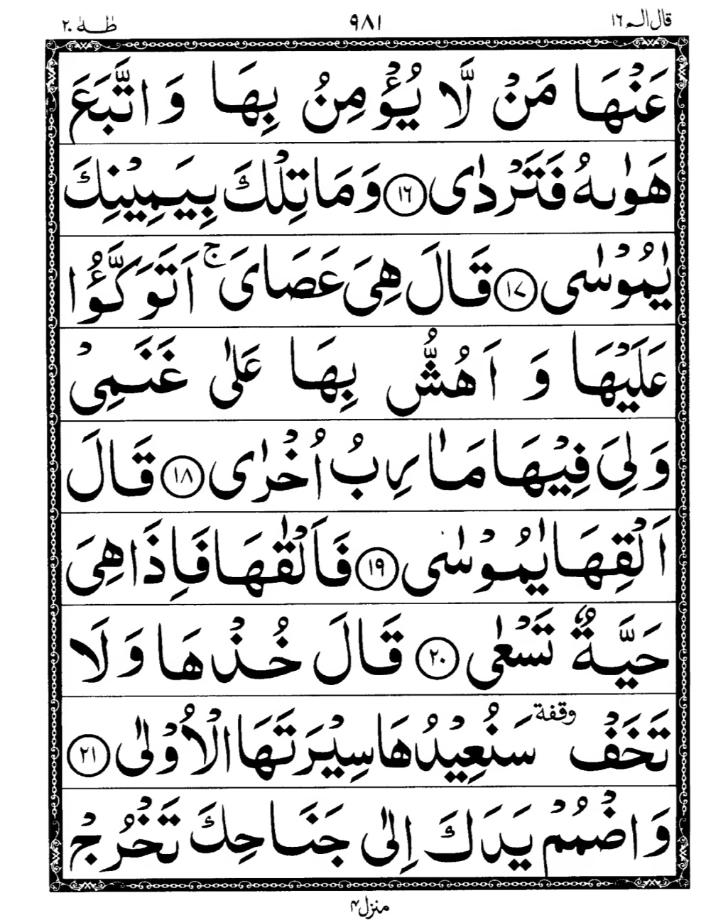 قال الم ١٦ ٩٨١ طٰهٰ ٢٠
عَنْهَا مَنْ لَّا يُؤْمِنُ بِهَا وَ اتَّبَعَ
هَوٰىهُ فَتَرْدٰى ﴿١٦﴾ وَ مَا تِلْكَ بِيَمِيْنِكَ
يٰمُوْسٰى ﴿١٧﴾ قَالَ هِىَ عَصَاىَ ۚ اَتَوَكَّؤُا
عَلَيْهَا وَ اَهُشُّ بِهَا عَلٰى غَنَمِىْ
وَلِىَ فِيْهَا مَاٰرِبُ اُخْرٰى ﴿١٨﴾ قَالَ
اَلْقِهَا يٰمُوْسٰى ﴿١٩﴾ فَاَلْقٰهَا فَاِذَا هِىَ
حَيَّةٌ تَسْعٰى ﴿٢٠﴾ قَالَ خُذْهَا وَ لَا
تَخَفْ وقفة سَنُعِيْدُهَا سِيْرَتَهَا الْاُوْلٰى ﴿٢١﴾
وَ اضْمُمْ يَدَكَ اِلٰى جَنَاحِكَ تَخْرُجْ
منزل ٤